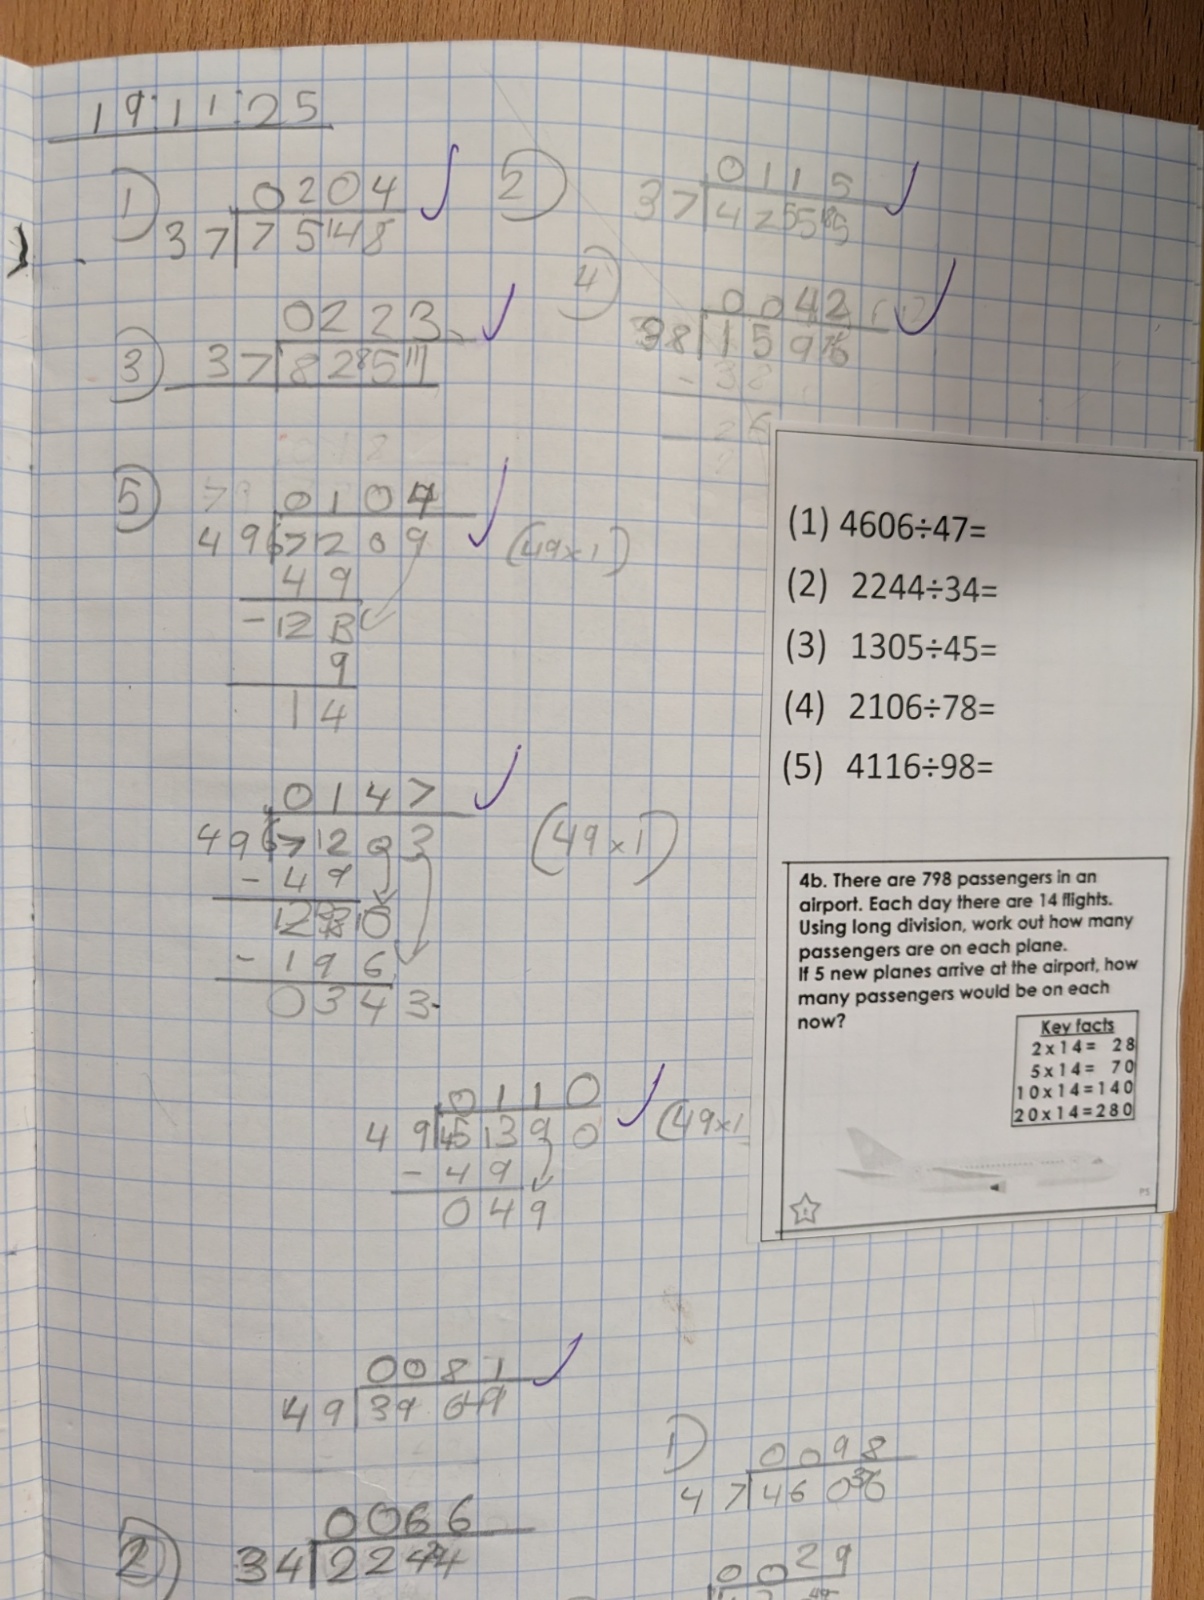 19:11:25
1) 0204
37 7 5 14 8
2) 0115
37 4 2 5 5 18 5
3) 0223
37 8 2 8 5 11 1
4) 0042
38 1 5 9 7 6
- 38
5) 0107
49 5 2 0 9
(49×1)
49
- 12
9
14
0147
49 7 2 0 3
(49×1)
- 49
10
- 196
0343
0110
49 5 3 9 0
(49×1
- 49
049
0081
49 39 6 4 9
1) 0098
47 4 6 0 37 6
2) 0066
34 2 2 4 4
0029
(1) 4606÷47=
(2) 2244÷34=
(3) 1305÷45=
(4) 2106÷78=
(5) 4116÷98=
4b. There are 798 passengers in an
airport. Each day there are 14 flights.
Using long division, work out how many
passengers are on each plane.
If 5 new planes arrive at the airport, how
many passengers would be on each
now?
Key facts
2 x 14 = 28
5 x 14 = 70
10 x 14 = 140
20 x 14 = 280
PS